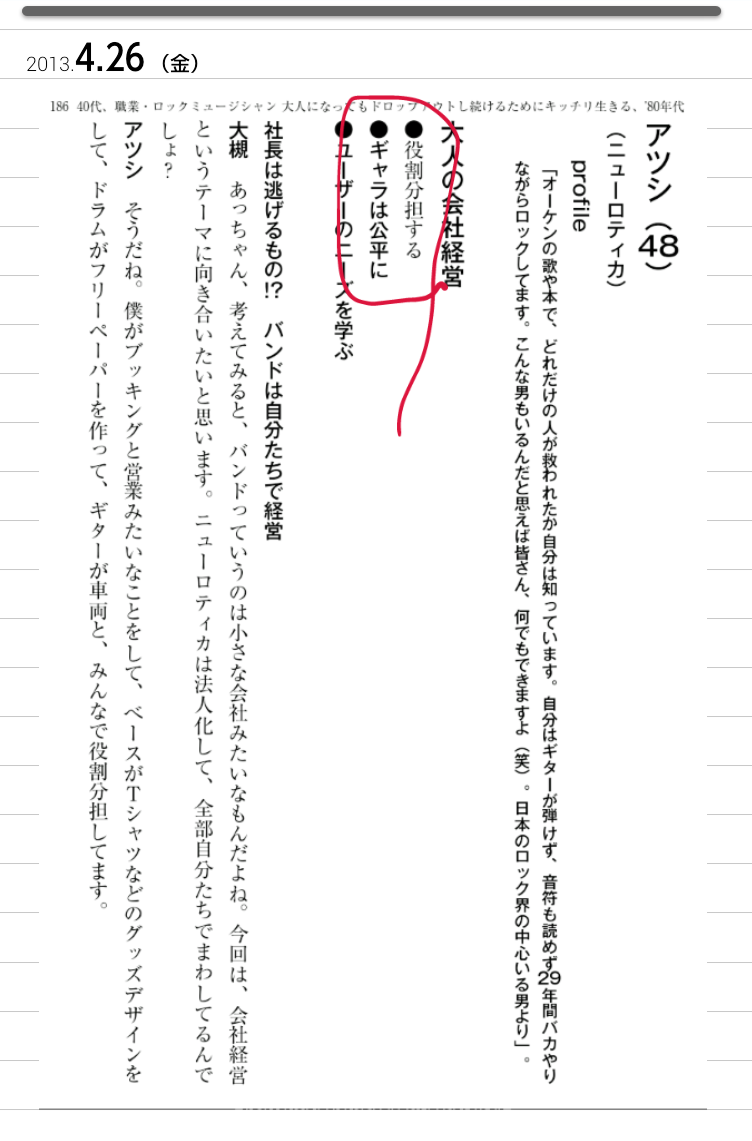 2013.4.26（金）
186 40代、職業・ロックミュージシャン 大人になってもドロップアウトし続けるためにキッチリ生きる、'80年代
アツシ（48）
（ニューロティカ）
profile
「オーケンの歌や本で、どれだけの人が救われたか自分は知っています。自分はギターが弾けず、音符も読めず29年間バカやり
ながらロックしてます。こんな男もいるんだと思えば皆さん、何でもできますよ（笑）。日本のロック界の中心いる男より」。
大人の会社経営
●役割分担する
●ギャラは公平に
●ユーザーのニーズを学ぶ
社長は逃げるもの!?　バンドは自分たちで経営
大槻　あっちゃん、考えてみると、バンドっていうのは小さな会社みたいなもんだよね。今回は、会社経営
というテーマに向き合いたいと思います。ニューロティカは法人化して、全部自分たちでまわしてるんで
しょ？
アツシ　そうだね。僕がブッキングと営業みたいなことをして、ベースがTシャツなどのグッズデザインを
して、ドラムがフリーペーパーを作って、ギターが車両と、みんなで役割分担してます。